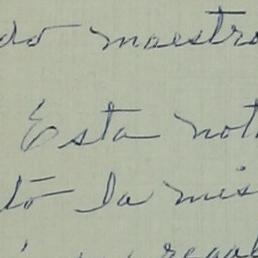 do maestro
Esta not
tó la mis